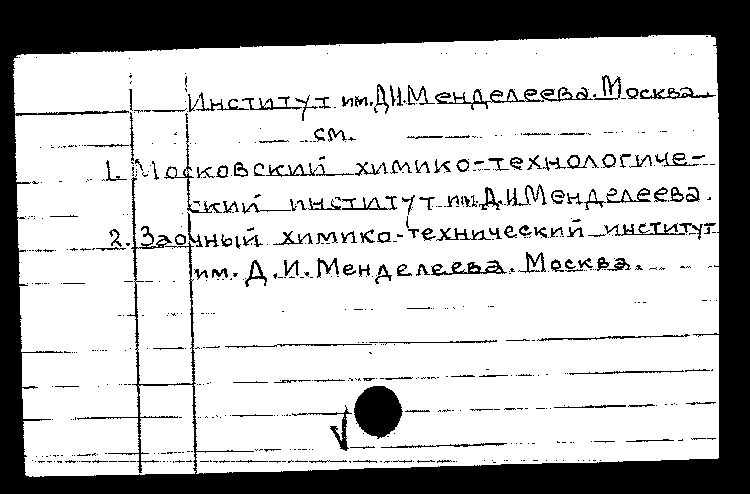 Институт им. Д.И. Менделеева. Москва
см.
1. Московский химико-технологиче-
ский институт им. Д.И. Менделеева.
2. Заочный химико-технический институт
им. Д.И. Менделеева. Москва.